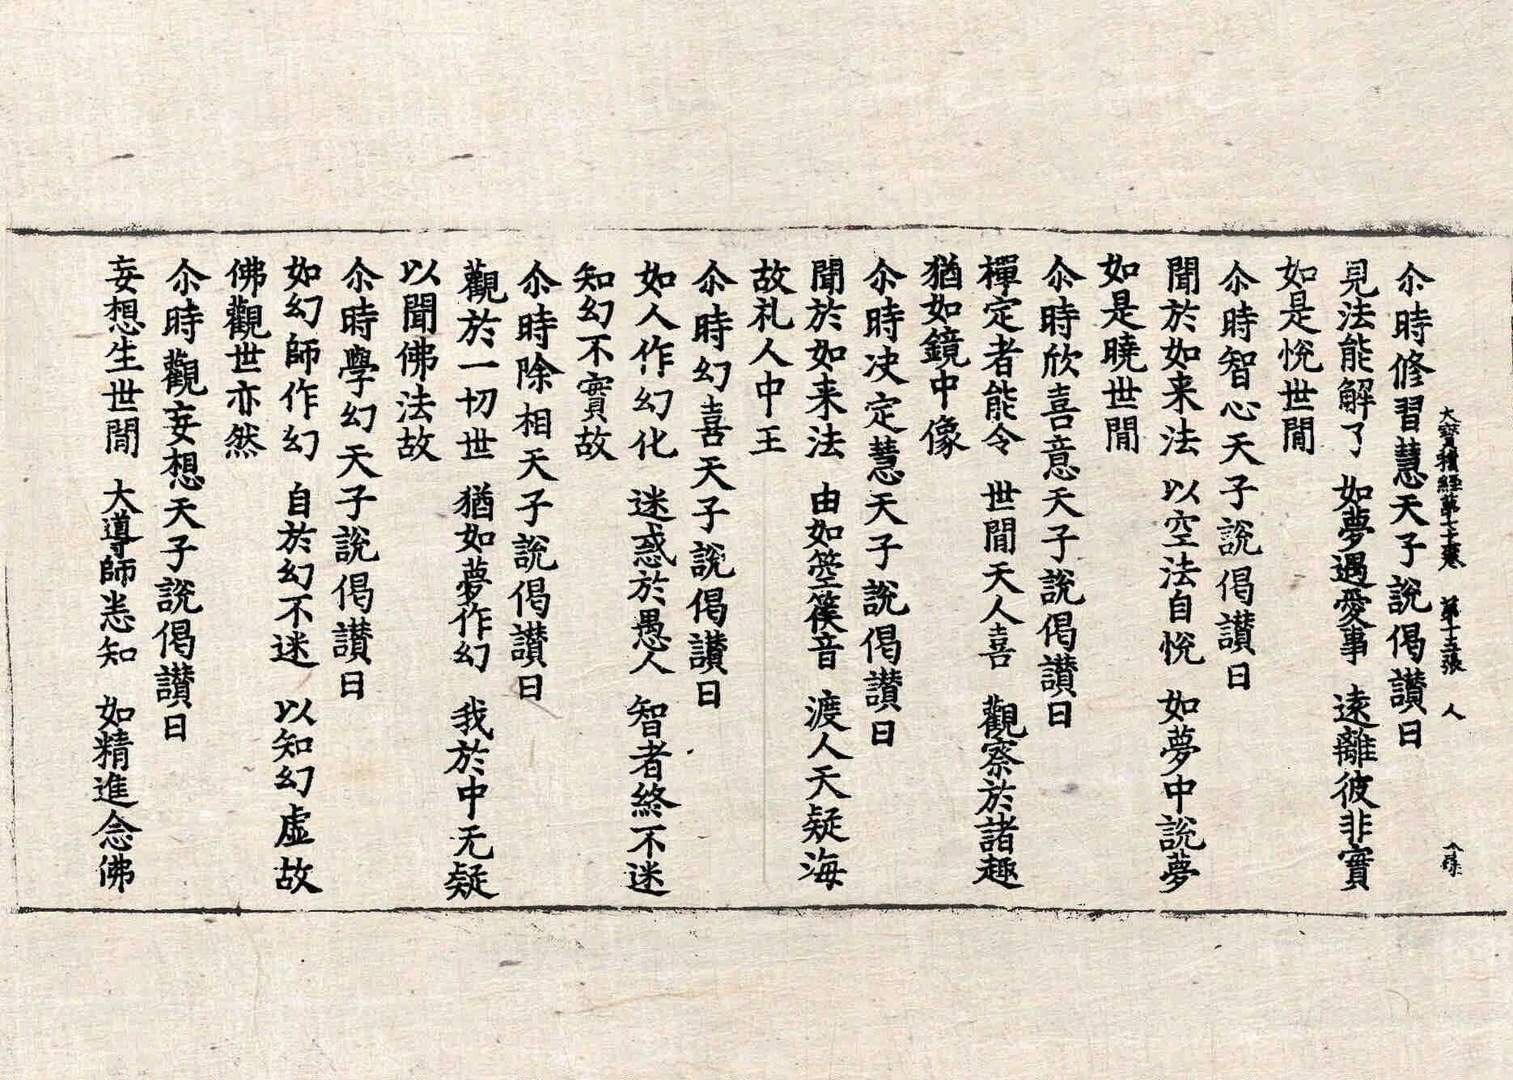 大寶積經第七十卷　第十三張　人
尒時修習慧天子說偈讃曰
見法能解了　如夢遇愛事　遠離彼非實
如是悅世閒
尒時智心天子說偈讃曰
聞於如来法　以空法自悅　如夢中說夢
如是曉世閒
尒時欣喜意天子說偈讃曰
禪定者能令　世閒天人喜　觀察於諸趣
猶如鏡中像
尒時决定慧天子說偈讃曰
聞於如来法　由如箜篌音　渡人天疑海
故礼人中王
尒時幻喜天子說偈讃曰
如人作幻化　迷惑於愚人　智者終不迷
知幻不實故
尒時除相天子說偈讃曰
觀於一切世　猶如夢作幻　我於中无疑
以聞佛法故
尒時學幻天子說偈讃曰
如幻師作幻　自於幻不迷　以知幻虛故
佛觀世亦然
尒時觀妄想天子說偈讃曰
妄想生世閒　大導師悉知　如精進念佛